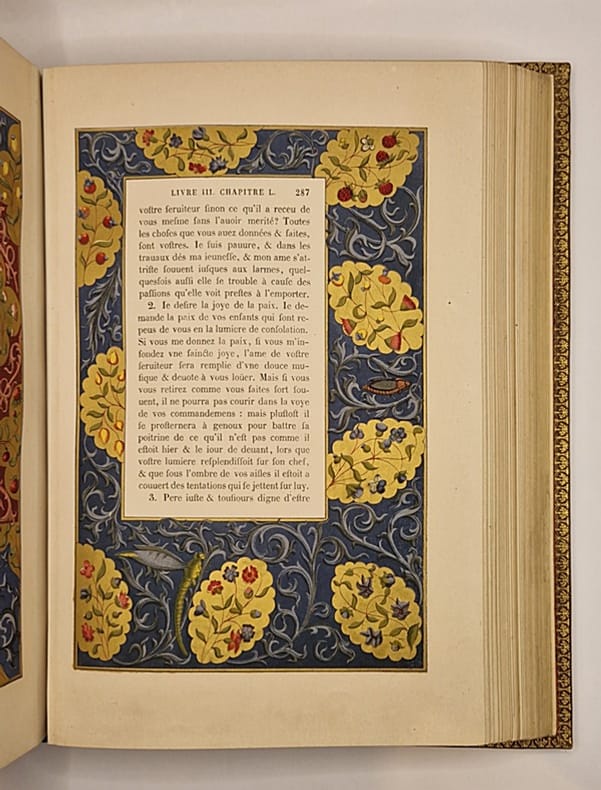 LIVRE III. CHAPITRE L. 287
voſtre ſeruiteur ſinon ce qu'il a receu de
vous meſme ſans l'auoir merité? Toutes
les choſes que vous auez données & faites,
ſont voſtres. Ie ſuis pauure, & dans les
trauaux dés ma ieuneſſe, & mon ame s'at-
triſte ſouuent iuſques aux larmes, quel-
quesfois auſſi elle ſe trouble à cauſe des
paſſions qu'elle voit preſtes à l'emporter.
2. Ie deſire la joye de la paix. Ie de-
mande la paix de vos enfants qui ſont re-
peus de vous en la lumiere de conſolation.
Si vous me donnez la paix, ſi vous m'in-
fondez vne ſaincte joye, l'ame de voſtre
ſeruiteur ſera remplie d'vne douce mu-
ſique & deuote à vous loüer. Mais ſi vous
vous retirez comme vous faites fort ſou-
uent, il ne pourra pas courir dans la voye
de vos commandemens : mais pluſtoſt il
ſe proſternera à genoux pour battre ſa
poitrine de ce qu'il n'eſt pas comme il
eſtoit hier & le iour de deuant, lors que
voſtre lumiere reſplendiſſoit ſur ſon chef,
& que ſous l'ombre de vos aiſles il eſtoit a
couuert des tentations qui ſe jettent ſur luy.
3. Pere iuſte & touſiours digne d'eſtre